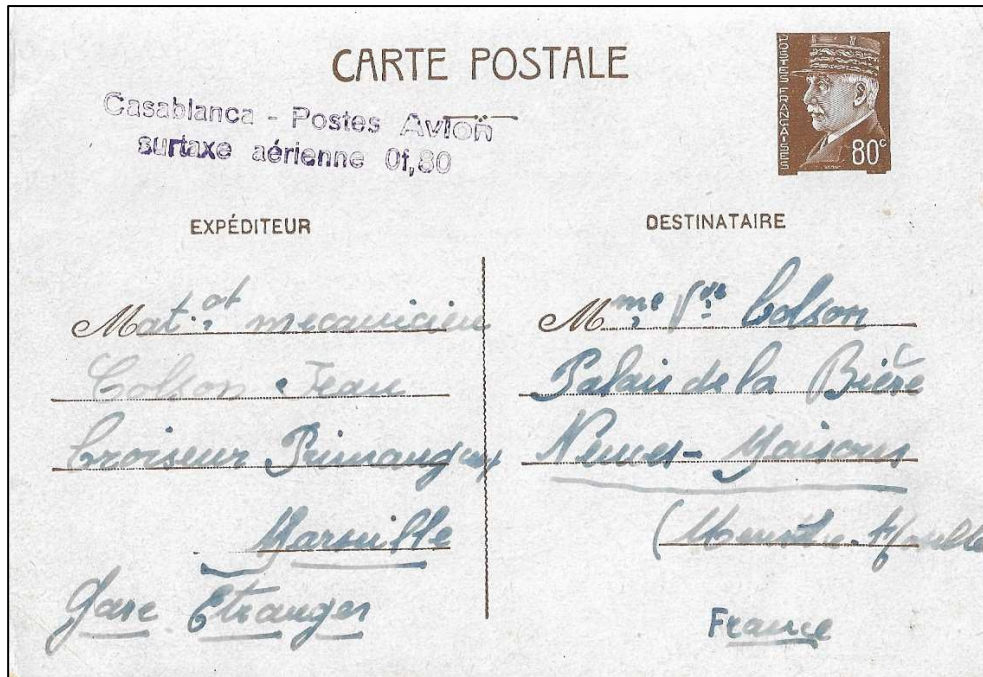 CARTE POSTALE
POSTES FRANÇAISES
80c
Casablanca - Postes Avion
surtaxe aérienne 0f,80
EXPÉDITEUR
Mat. ot mecanicien
Colson Jean
Croiseur Primauguet
Marseille
Gare Etranger
DESTINATAIRE
Mme Vve Colson
Palais de la Bière
Neuves-Maisons
(Meurthe-Moselle
France